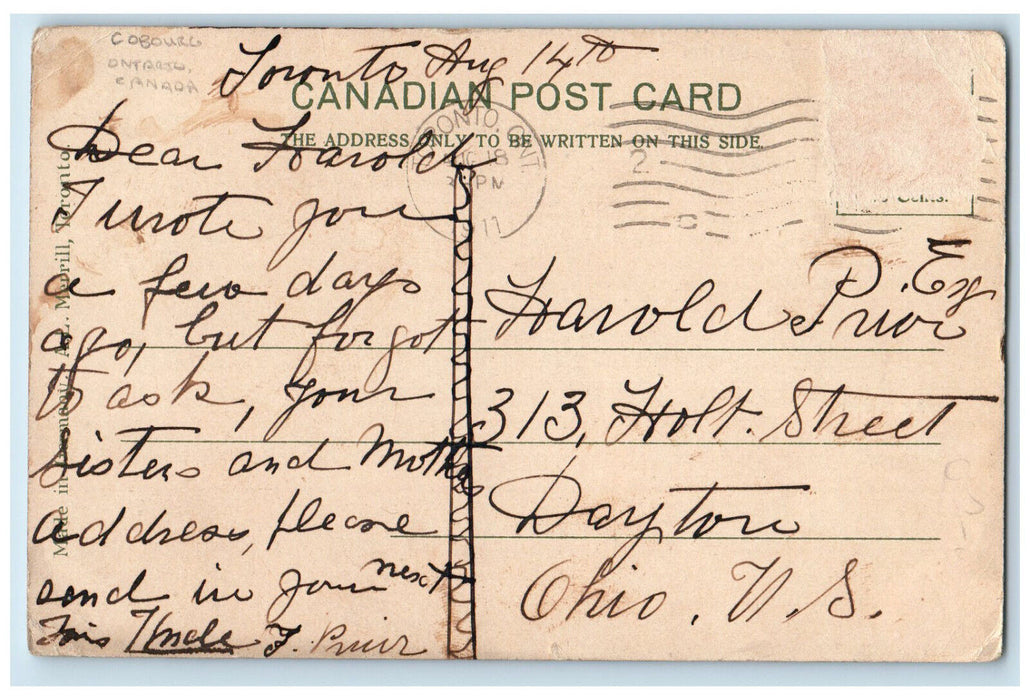 COBOURG
ONTARIO,
CANADA
Toronto Aug 14th
CANADIAN POST CARD
THE ADDRESS ONLY TO BE WRITTEN ON THIS SIDE.
TORONTO, ONT
18
PM
11
2
Dear Harold
I wrote you
a few days
ago, but forgot
to ask, your
sisters and Mothers
address, please
send in your next
Uncle F. Prior
Harold Prior, Esq
313, Holt. Street
Dayton
Ohio, U.S.
Made in
Merrill, Toronto
Cents.